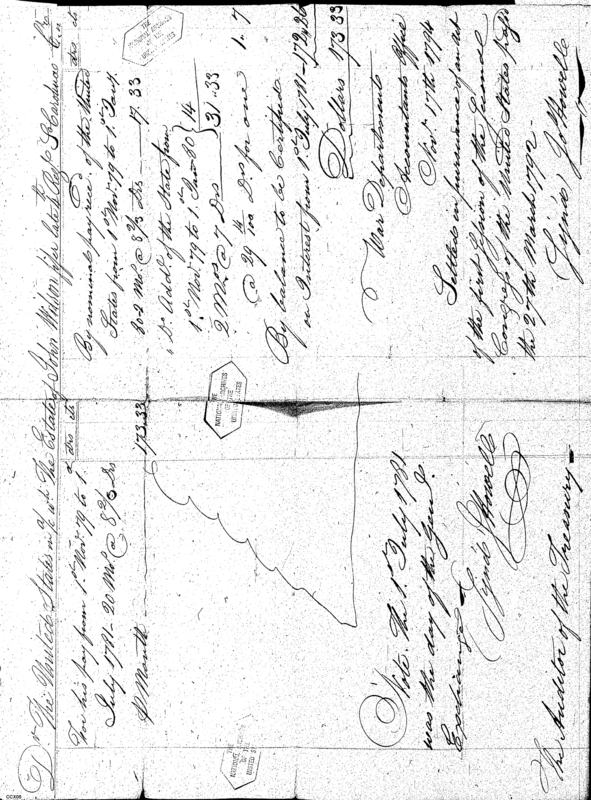 Dr. The United States in a/c wh. The Estate of John Wilson
drs cts
For his pay from 1st Novr. 79 to 1.
July 1781 - 20 Mos. @ 8 2/3 Drs
P Month 173.33
Note. The 1st July 1781
was the day of the Genl.
Exchange
Sign'd J Howell
The Auditor of the Treasury
Cr.
drs cts
By nominal pay recd. of the United
States from 1st Novr. 79 to 1. Jany.
80 2 Mos. @ 8 2/3 Drs 17.33
Do. Addl. of the State from
1st Novr. 79 to 1. Jany 80 } 14
2 Mos @ 7 Drs 31.33
@ 29 14/100 Drs for one 1.7
By balance to be Certified
on Interest from 1st July 1781
Dollars 173 33
War Department
Accountants Office
Novr. 17th 1794
Settled in pursuance of an act
of the first Session of the Second
Congress of the United States passed
the 27th March 1792
Sign'd, Jo Howell
THE
NATIONAL ARCHIVES
OF THE
UNITED STATES
THE
NATIONAL ARCHIVES
OF THE
UNITED STATES
THE
NATIONAL ARCHIVES
OF THE
UNITED STATES